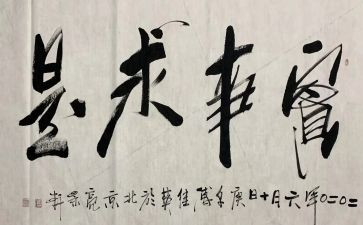 實事求是
二〇二〇年六月十日庚子佳英於北京亮景軒